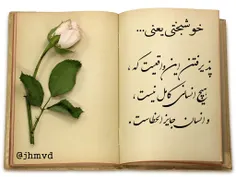 خوشبختی یعنی...
پذیرفتن این واقعیت که،
هیچ انسانی کامل نیست،
و انسان جایز الخطاست.
@jhmvd